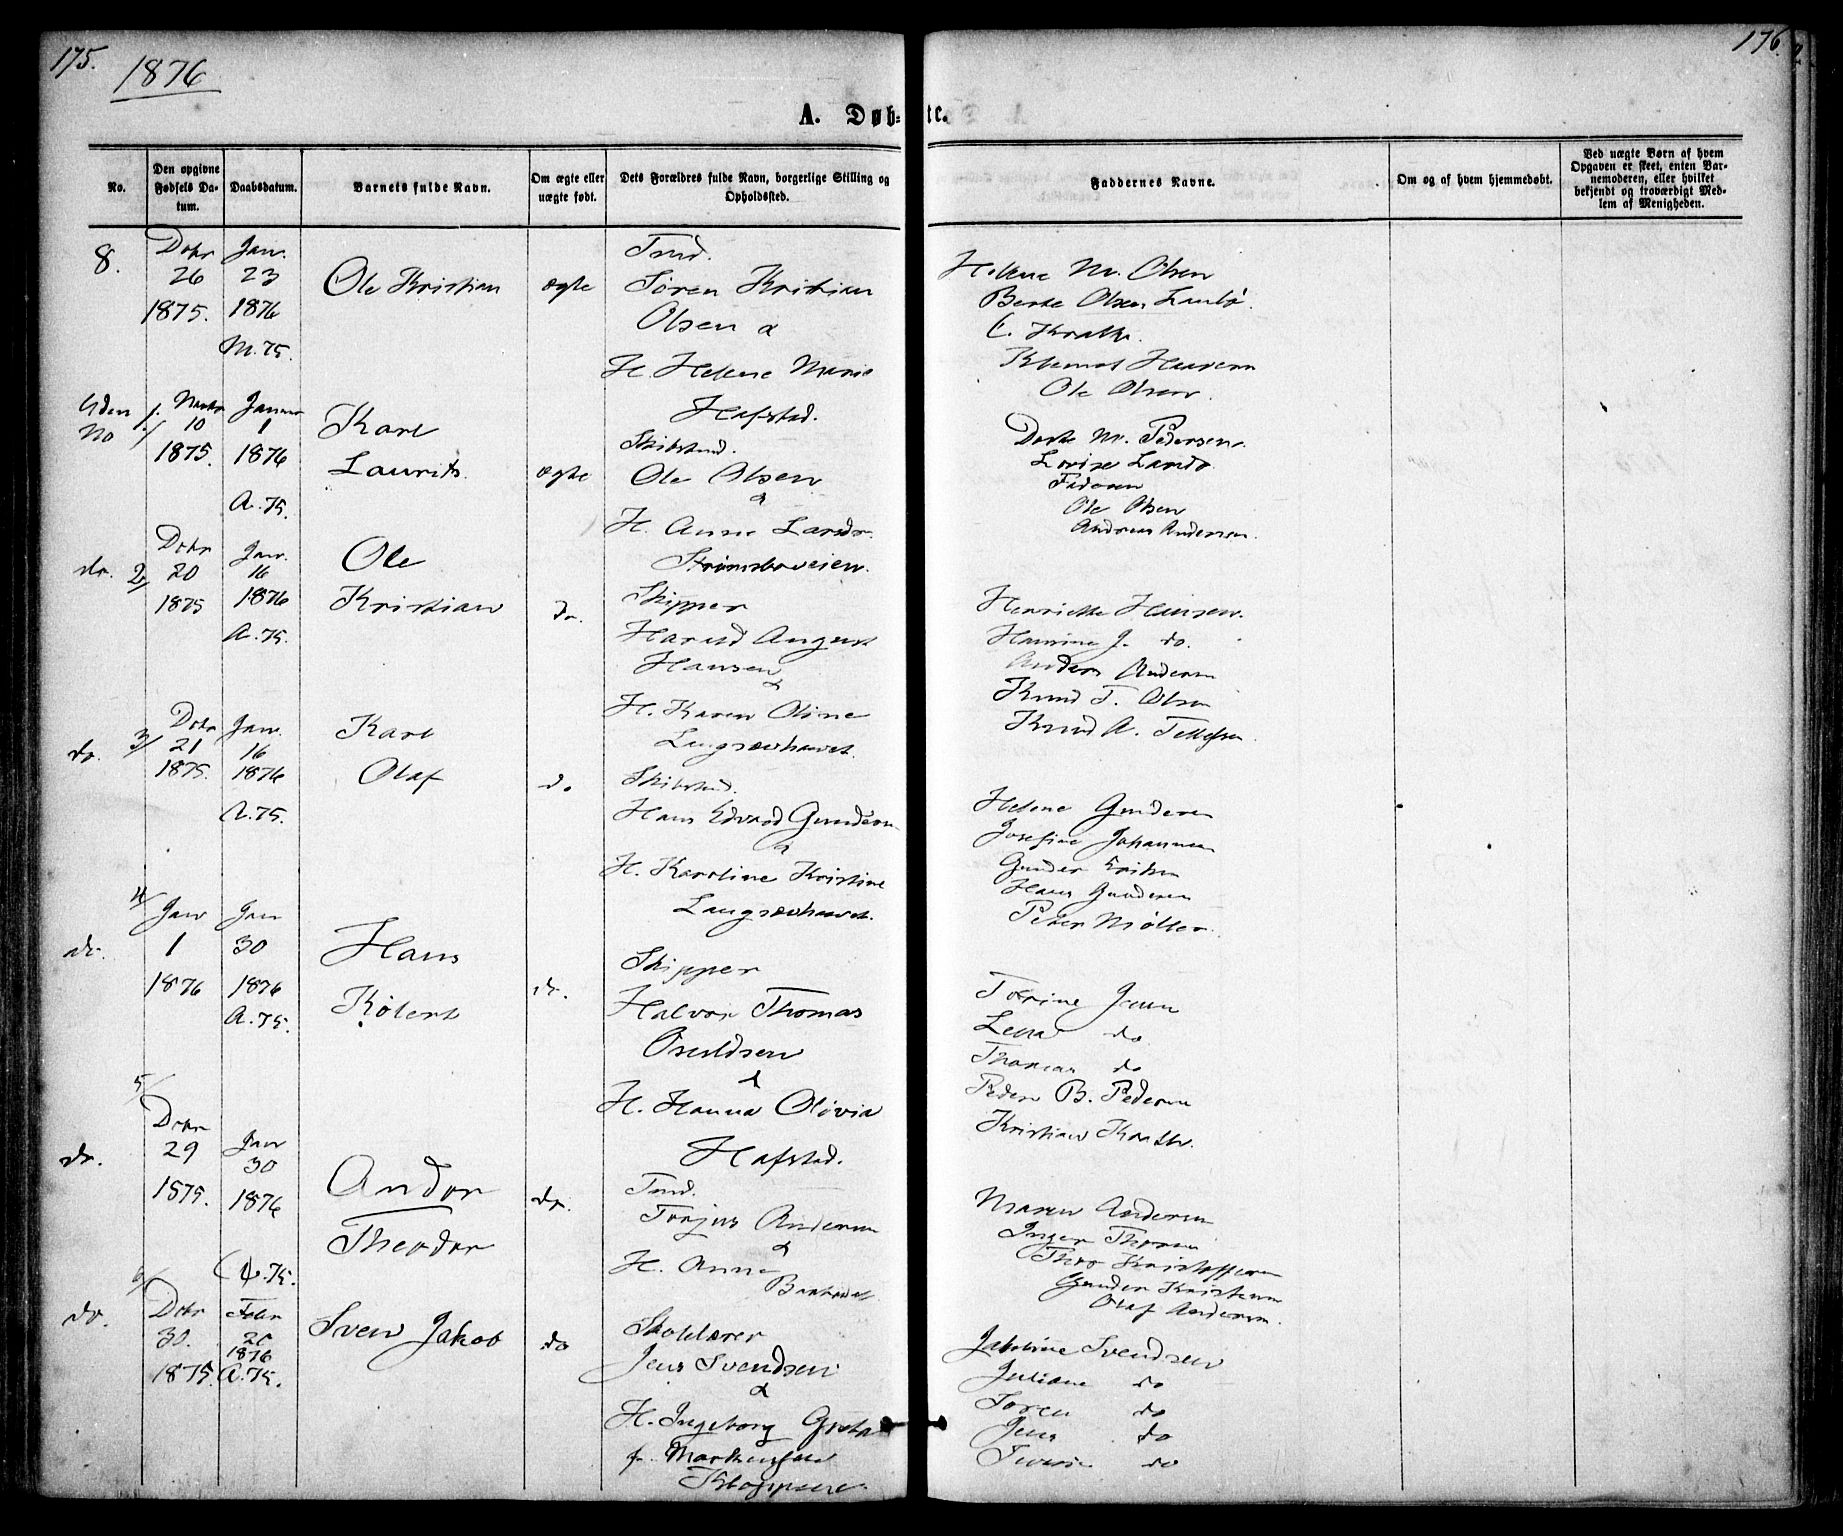 175.
1876
176.
A. Døb-te.
No.
Den opgivne Fødsels Da-tum.
Daabsdatum.
Barnets fulde Navn.
Om ægte eller uægte født.
Dets Forældres fulde Navn, borgerlige Stilling og Opholdssted.
Faddernes Navne.
Om og af hvem hjemmedøbt.
Ved uægte Børn af hvem
Opgaven er skeet, enten Bar-
nemoderen, eller hvilket
bekjendt og troværdigt Med-
lem af Menigheden.
8.
Decbr
26
1875.
Jan.
23
1876
M. 75.
Ole Kristian
ægte
Tmd.
Søren Kristian
Olsen &
H. Helene Marie
Hafstad.
Helene M. Olsen
Berte Olsen
Ole Olsen
Uden No
1.
10
1875.
Januar
1
1876
A. 75.
Karl
Laurits
ægte
Skibstmd.
Ole Olsen
&
H. Anne Larsdr.
Strømsboveien.
Dorte M. Pedersen
Lovise Larsdr
Faderen
Ole Olsen
Andreas Andersen
do. 2/
Decbr
20
1875
Jan.
16
1876
A. 75.
Ole
Kristian
do.
Skipper
Harald August
Hansen
&
H. Karen Oline
Langsævhavet
Henriette Hansen.
Hansine J. do.
Anders Andersen
Knud T. Olsen
Knud A. Tellefsen
do. 3/
Decbr
21
1875.
Jan.
16
1876
A. 75.
Karl
Olaf
do
Skibstmd.
Hans Edvard Gundersen
&
H. Karoline Kristine
Langsævhavet.
Helene Gundersen
Josefine Johannesen
Gunder Eriksen
Hans Gundersen
Peter Møller
do. 4/
Jan
1
1876
Jan
30
1876
A. 75.
Hans
do.
Skipper
Halvor Thomas
Osuldsen
&
H. Hanna Olivia
Hafstad.
Torine Jensen
Lena do
Thomas do
Peder B. Pedersen
Kristian
do. 5/
Decbr
29
1875.
Jan
30
1876
A. 75.
Andor
Theodor
do.
Tmd.
Torjus Andersen
&
H. Anne
Maren Andersen
Inger
Kristoffersen
Gunder Kristensen
Olaf Andersen.
do. 6/
Decbr
30.
1875.
Febr
20
1876
A. 75.
Sven Jakob
do
Skolelærer
Jens Svendsen
&
H. Ingeborg
f.
Jakobine Svendsen
Juliane do
Søren do
Jens do
do